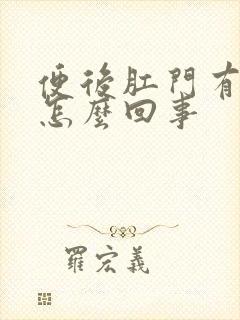 便後肛門有
怎麼回事
羅宏義